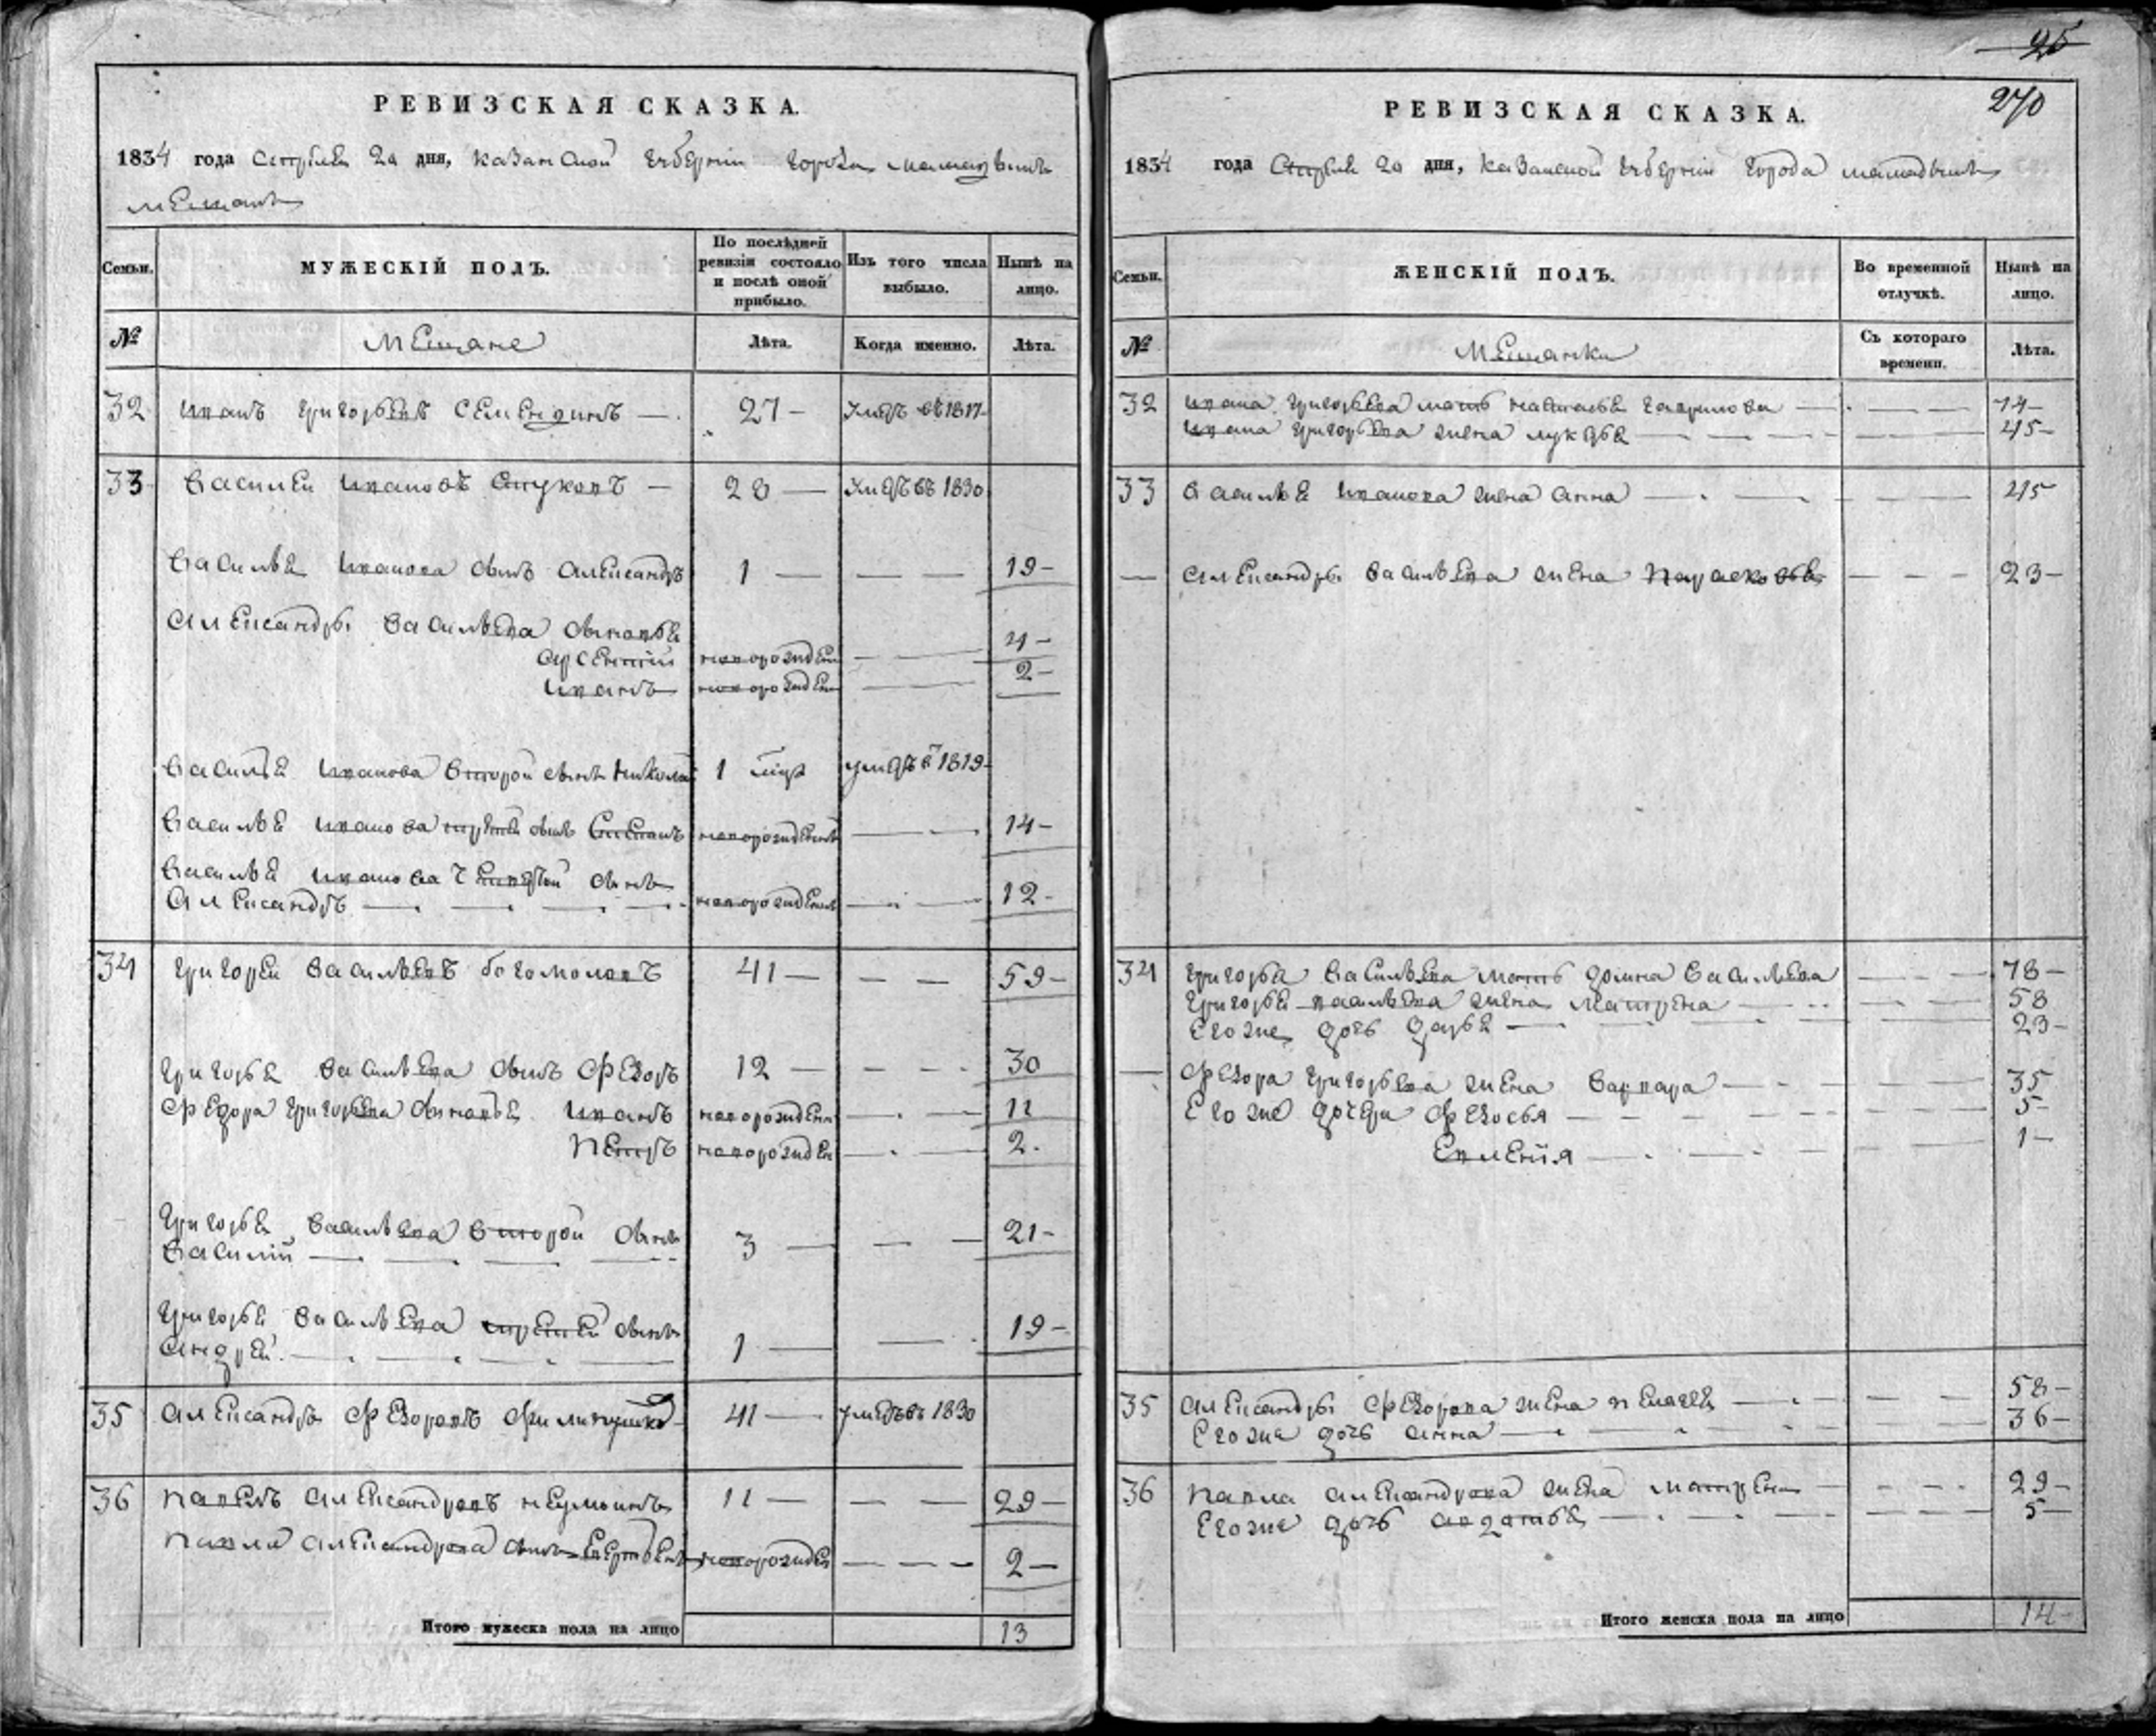 25
270
РЕВИЗСКАЯ СКАЗКА.
1834 года Сентября 20 дня, Казанской Губернии Города Мамадыша
Мещанъ
Семьи. МУЖЕСКІЙ ПОЛЪ. По послѣдней ревизіи состояло и послѣ оной прибыло. Изъ того числа выбыло. Нынѣ на лицо.
№ Мещане Лѣта. Когда именно. Лѣта.
32 Иванъ Григорьевъ 27 — умеръ въ 1817
33 Василей Ивановъ Стуковъ — 28 — умеръ въ 1830
Василья Иванова сынъ Александръ 1 — — — — 19 —
Александры Васильева сыновья
Арсентій новорожден — — 4 —
Иванъ новорожден — — 2 —
Василья Иванова второй сынъ Никола 1 умеръ в 1819
Василья Иванова третей сынъ Степанъ новорожденъ — — 14 —
Василья Иванова четвертой сынъ
Александръ — — — — новорожденъ — — 12 —
34 Григорей Васильевъ Богомоловъ 41 — — — — 59 —
Григорья Васильева сынъ Федоръ 12 — — — — 30
Федора Григорьева сыновья Иванъ новорожден — — 11
Петръ новорожден — — 2.
Григорья Васильева второй сынъ
Василій — — — — 3 — — — 21 —
Григорья Васильева третей сынъ
Андрей. — — — — 1 — — 19 —
35 Александръ Федоровъ 41 — умеръ въ 1830
36 Павелъ Александровъ 11 — — — — 29 —
Павла Александрова сынъ новорожден — — — 2 —
Итого мужеска пола на лицо 13
РЕВИЗСКАЯ СКАЗКА.
1834 года Сентября 20 дня, Казанской Губернии Города Мамадыша
Семьи. ЖЕНСКІЙ ПОЛЪ. Во временной отлучкѣ. Нынѣ на лицо.
№ Мещанки Съ котораго времени. Лѣта.
32 Ивана Григорьева мать Наталья Гаврилова — — — 74 —
Ивана Григорьева жена Лукерья — — — — — 45 —
33 Василья Иванова жена Анна — — — — — — 45
— Александры Васильева жена Парасковья — — — 23 —
34 Григорья Васильева мать Домна Васильева — — — 78 —
Григорья Васильева жена Матрена — — — — 58
Его же дочь Дарья — — — — — — 23 —
— Федора Григорьева жена Варвара — — 35
Его же дочери Федосья — — — — — 5 —
Евгенія — — — — — 1 —
35 Александры Федорова жена Пелагея — — — — 58 —
Его же дочь Анна — — — — — 36 —
36 Павла Александрова жена Матрена — — — — 29 —
Его же дочь Авдотья — — — — — — 5 —
Итого женска пола на лицо 14 —